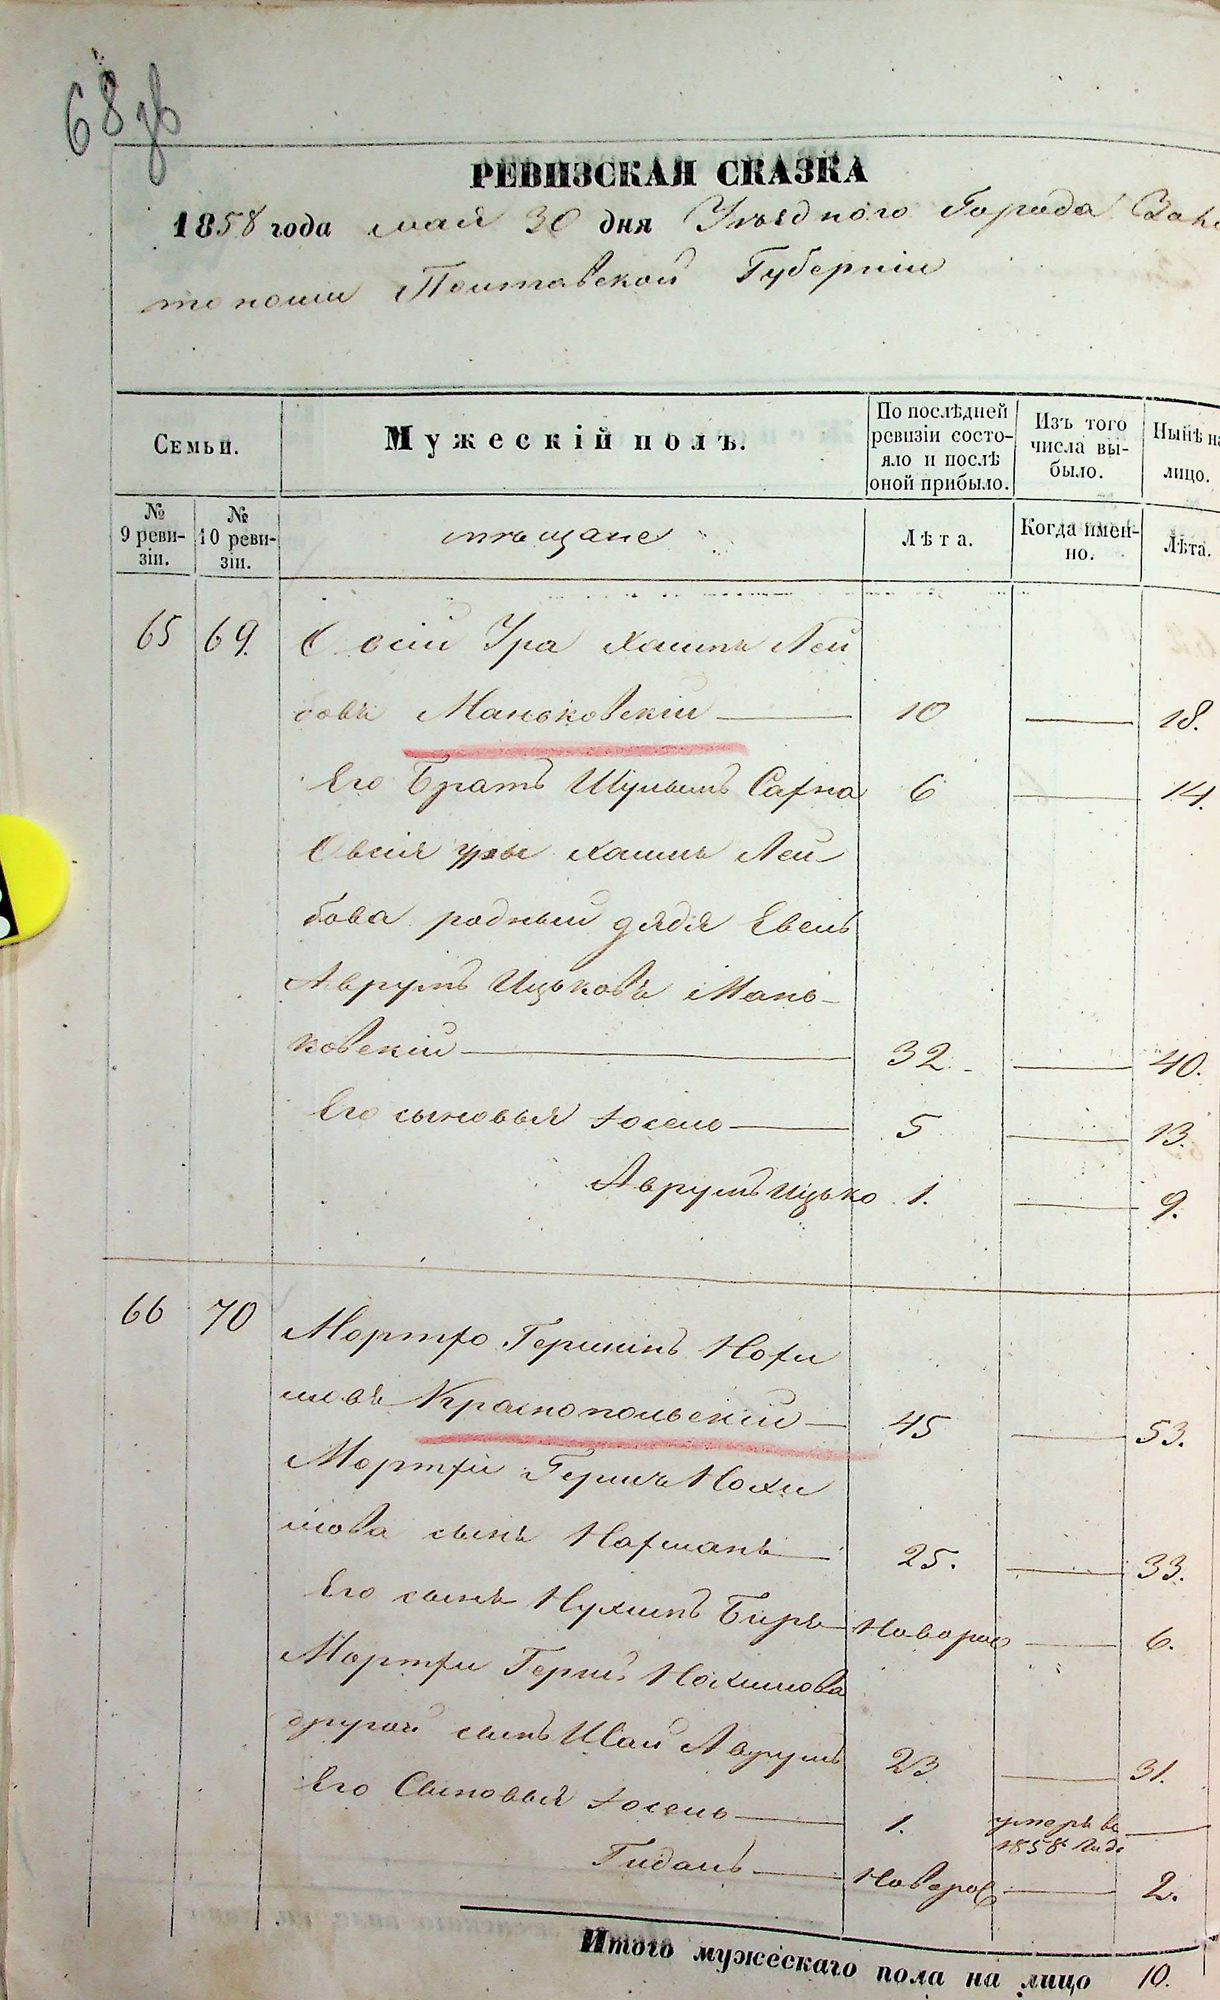 68 зв
РЕВИЗСКАЯ СКАЗКА
1858 года мая 30 дня Уѣзднаго Города Золо
тоноши Полтавской Губерніи
Семьи.
Мужескій полъ.
По послѣдней ревизіи состояло и послѣ оной прибыло.
Изъ того числа выбыло.
Нынѣ на лицо.
№ 9 ревизіи.
№ 10 ревизіи.
мѣщане
Лѣта.
Когда именно.
Лѣта.
65 69. Овсій Ура Хаимъ Лей
бовъ Маньковскій 10 18.
Его Братъ Шулимъ Сахна 6 14.
Овсія Уры Хаима Лей
бова родный дядя Евель
Аврумъ Ицьковъ Мань-
ковскій 32. 40.
Его сыновья Іосель 5 13.
Аврумъ Ицько 1. 9.
66 70 Мортхо Гершкінъ Нохи
мовъ Краснопольскій 45 53.
Мортхи Герша Нохи
мова сынъ Нахманъ 25. 33.
Его сынъ Нухимъ Беръ Новорож 6.
Мортхи Герша Нохимова
другой сынъ Шаи Аврумъ 23 31.
Его Сыновья Іосель 1. умеръ въ 1858 годе
Гидаль Новорож 2.
Итого мужескаго пола на лицо 10.